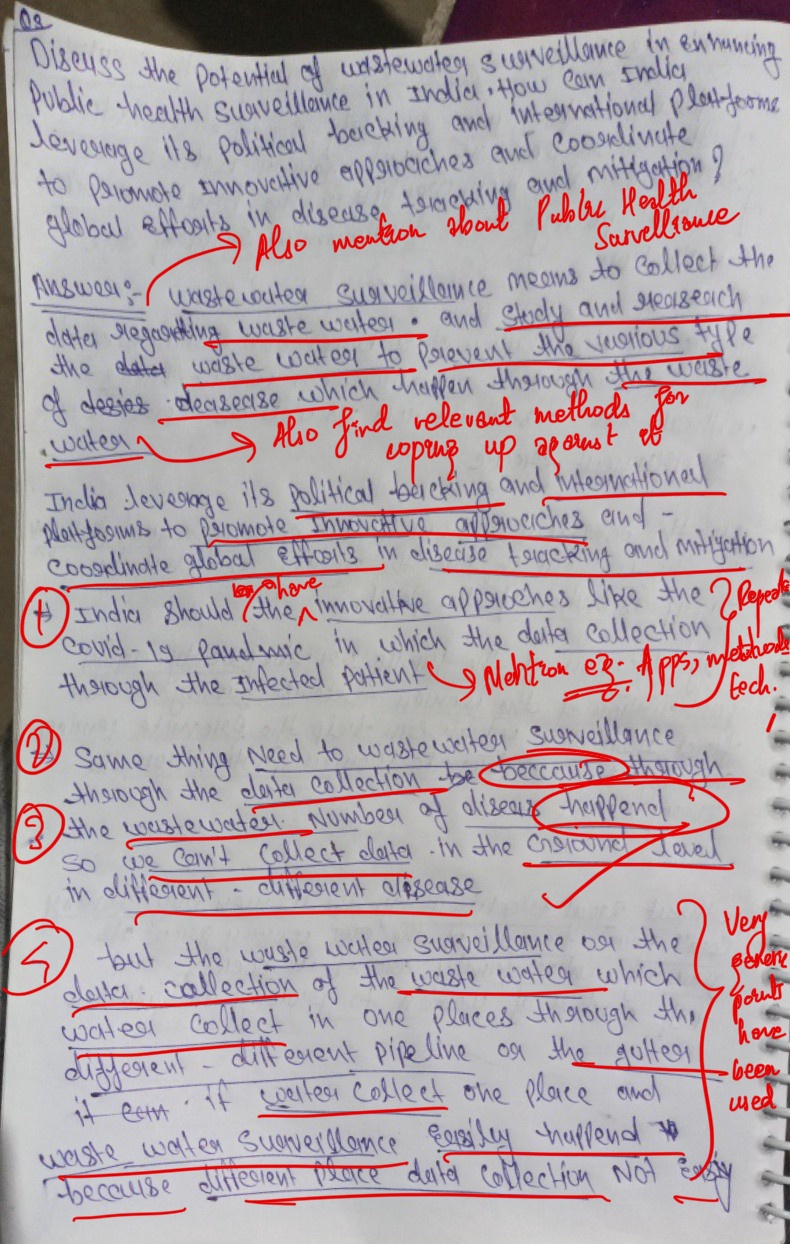 Q2
Discuss the potential of wastewater surveillance in enhancing
Public health surveillance in India. How can India
leverage its political backing and international platforms
to promote innovative approaches and coordinate
global efforts in disease tracking and mitigation?
Also mention about Public Health
Survelliance
Answer:- wastewater surveillance means to collect the
data regarding waste water. and study and reaseach
the data waste water to prevent the various type
of desies deasease which happen through the waste
water
Also find relevant methods for
coping up against it
India leverage its political backing and international
platforms to promote innovative approaches and -
coordinate global efforts in disease tracking and mitigation
1 India should the have innovative approches like the
Covid-19 pandmic in which the data collection
through the infected patient
Mention eg. Apps, methods
tech.
2 Same thing need to wastewater surveillance
through the data collection beccause through
3 the wastewater Number of diseas happend
so we can't collect data in the Ground level
in different - different disease
4 but the waste water surveillance or the
data collection of the waste water which
water collect in one places through the
different - different pipeline or the gutter
if water collect one place and
waste water surveillance easiley happend
because different place data collection Not easiy
Very
generic
points
have
been
used